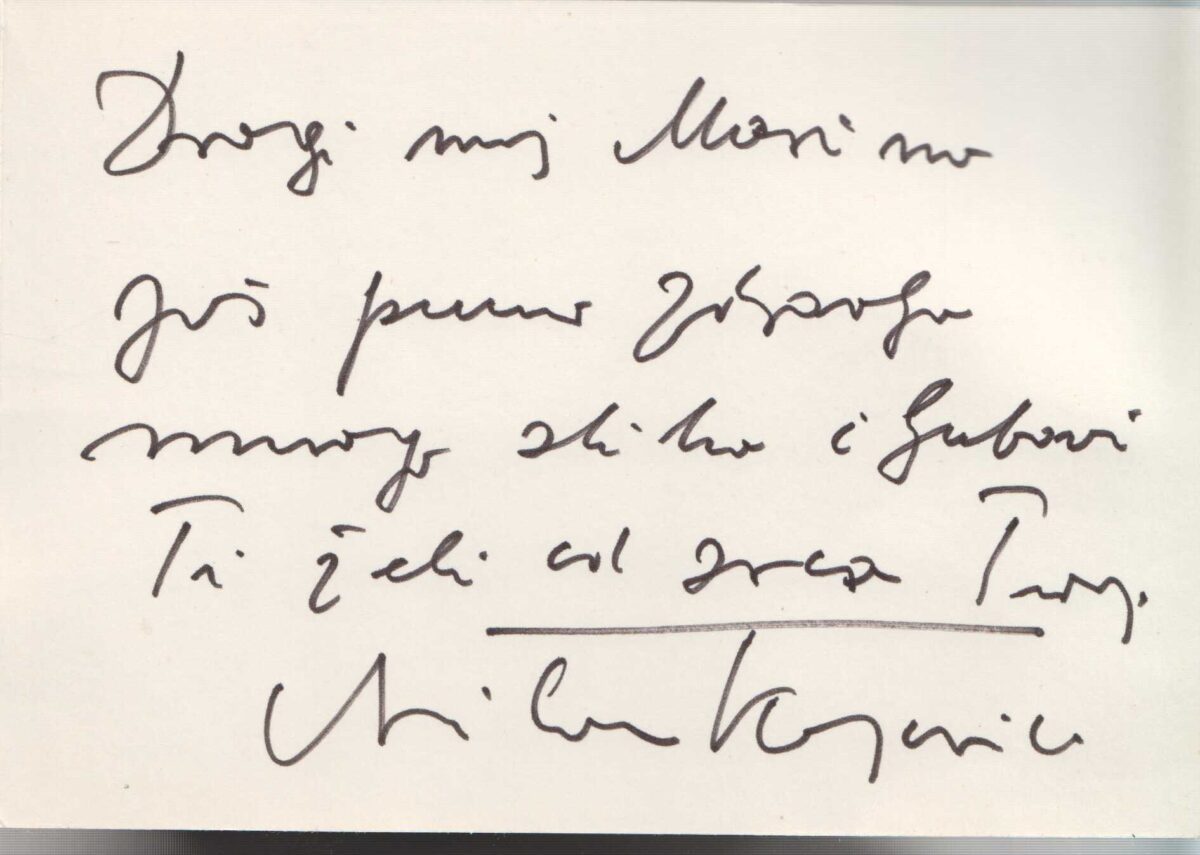 Dragi moj Masimo
Još puno zdravlja
mnogo slika i ljubavi
Ti želi od srca Tvoj
Milan